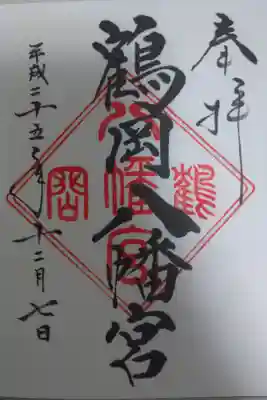 奉拝
鶴岡八幡宮
平成二十五年十二月七日
鶴
八幡宮
岡